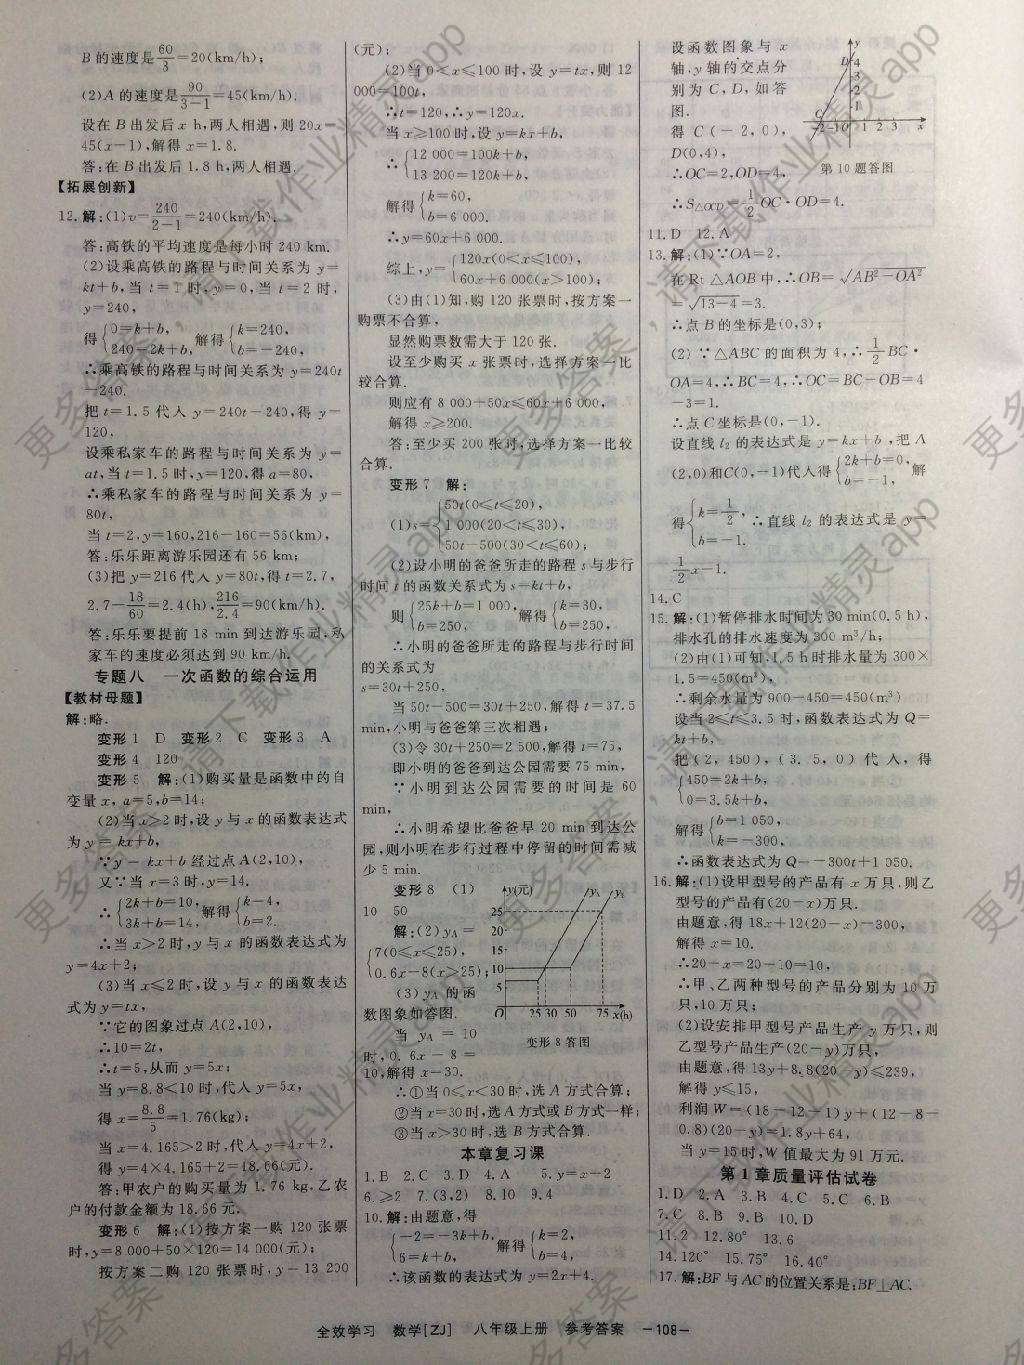 B的速度是60/3=20(km/h);
(2)A的速度是90/(3-1)=45(km/h).
设在B出发后x h,两人相遇,则20x=
45(x-1),解得x=1.8.
答:在B出发后1.8 h,两人相遇.
【拓展创新】
12.解:(1)v=240/(2-1)=240(km/h).
答:高铁的平均速度是每小时240 km.
(2)设乘高铁的路程与时间关系为y=
kt+b,当t=1时,y=0,当t=2时,
y=240,
得{0=k+b, 240=2k+b, 解得{k=240, b=-240,
∴乘高铁的路程与时间关系为y=240t
-240.
把t=1.5代入y=240t-240,得y=
120,
设乘私家车的路程与时间关系为y=
at,当t=1.5时,y=120,得a=80,
∴乘私家车的路程与时间关系为y=
80t,
当t=2,y=160,216-160=56(km),
答:乐乐距离游乐园还有56 km;
(3)把y=216代入y=80t,得t=2.7,
2.7-18/60=2.4(h),216/2.4=90(km/h).
答:乐乐要提前18 min到达游乐园,私
家车的速度必须达到90 km/h.
专题八 一次函数的综合运用
【教材母题】
解:略.
变形1 D 变形2 C 变形3 A
变形4 120
变形5 解:(1)购买量是函数中的自
变量x,a=5,b=14;
(2)当x>2时,设y与x的函数表达式
为y=kx+b,
∵y=kx+b经过点A(2,10),
又∵当x=3时,y=14,
∴{2k+b=10, 3k+b=14, 解得{k=4, b=2.
∴当x>2时,y与x的函数表达式为
y=4x+2;
(3)当x≤2时,设y与x的函数表达
式为y=tx,
∵它的图象过点A(2,10),
∴10=2t,
∴t=5,从而y=5x;
当y=8.8<10时,代入y=5x,
得x=8.8/5=1.76(kg);
当x=4.165>2时,代入y=4x+2,
得y=4×4.165+2=18.66(元).
答:甲农户的购买量为1.76 kg,乙农
户的付款金额为18.66元.
变形6 解:(1)按方案一购120张票
时,y=8 000+50×120=14 000(元);
按方案二购120张票时,y=13 200
(元);
(2)当0<x≤100时,设y=tx,则12
000=100t,
∴t=120,∴y=120x.
当x≥100时,设y=kx+b,
∴{12 000=100k+b, 13 200=120k+b,
解得{k=60, b=6 000.
∴y=60x+6 000.
综上,y={120x(0<x≤100), 60x+6 000(x>100);
(3)由(1)知,购120张票时,按方案一
购票不合算,
显然购票数需大于120张.
设至少购买x张票时,选择方案一比
较合算.
则应有8 000+50x≤60x+6 000,
解得x≥200.
答:至少买200张时,选择方案一比较
合算.
变形7 解:
(1)s={50t(0≤t≤20), 1 000(20<t≤30), 50t-500(30<t≤60);
(2)设小明的爸爸所走的路程s与步行
时间t的函数关系式为s=kt+b,
则{25k+b=1 000, b=250, 解得{k=30, b=250,
∴小明的爸爸所走的路程与步行时间
的关系式为
s=30t+250,
当50t-500=30t+250,解得t=37.5
min,小明与爸爸第三次相遇;
(3)令30t+250=2 500,解得t=75,
即小明的爸爸到达公园需要75 min,
∵小明到达公园需要的时间是60
min,
∴小明希望比爸爸早20 min到达公
园,则小明在步行过程中停留的时间需减
少5 min.
变形8 (1)
10 50
解:(2)yA=
{7(0≤x≤25), 0.6x-8(x≥25);
(3)yA的函
数图象如答图.
当yA=10
时,0.6x-8=
10,解得x=30.
y(元)
25
20
15
10
5
O 25 30 50 75 x(h)
变形8答图
∴①当0≤x<30时,选A方式合算;
②当x=30时,选A方式或B方式一样;
③当x>30时,选B方式合算.
本章复习课
1.B 2.C 3.D 4.A 5.y=x-2
6.≥2 7.(3,2) 8.10 9.4
10.解:由题意,得
{-2=-3k+b, 6=k+b, 解得{k=2, b=4,
∴该函数的表达式为y=2x+4.
设函数图象与x
轴,y轴的交点分
别为C,D,如答
图.
得C(-2,0),
D(0,4),
∴OC=2,OD=4,
y
D 4
3
2
1
C
-2 -1 0 1 2 3 x
第10题答图
∴S△OCD=1/2 OC·OD=4.
11.D 12.A
13.解:(1)∵OA=2,
在Rt△AOB中,∴OB=√AB²-OA²
=√13-4=3.
∴点B的坐标是(0,3);
(2)∵△ABC的面积为4,∴1/2 BC·
OA=4,∴BC=4,∴OC=BC-OB=4
-3=1.
∴点C坐标是(0,-1).
设直线l₂的表达式是y=kx+b,把A
(2,0)和C(0,-1)代入得{2k+b=0, b=-1, 解
得{k=1/2, b=-1. ∴直线l₂的表达式是y=
1/2 x-1.
14.C
15.解:(1)暂停排水时间为30 min(0.5 h),
排水孔的排水速度为300 m³/h;
(2)由(1)可知,1.5 h时排水量为300×
1.5=450(m³),
∴剩余水量为900-450=450(m³)
设当2≤t≤3.5时,函数表达式为Q=
kt+b,
把(2,450),(3.5,0)代入,得
{450=2k+b, 0=3.5k+b,
解得{b=1 050, k=-300,
∴函数表达式为Q=-300t+1 050.
16.解:(1)设甲型号的产品有x万只,则乙
型号的产品有(20-x)万只.
由题意,得18x+12(20-x)=300,
解得x=10.
∴20-x=20-10=10,
∴甲、乙两种型号的产品分别为10万
只,10万只;
(2)设安排甲型号产品生产y万只,则
乙型号产品生产(20-y)万只,
由题意,得13y+8.8(20-y)≤239,
解得y≤15,
利润W=(18-12-1)y+(12-8-
0.8)(20-y)=1.8y+64,
当y=15时,W值最大为91万元.
第1章质量评估试卷
1.D 2.A 3.B 4.C 5.C 6.B
7.C 8.B 9.B 10.D
11.2 12.80° 13.6
14.120° 15.75° 16.40°
17.解:BF与AC的位置关系是:BF⊥AC.
全效学习 数学[ZJ] 八年级上册 参考答案 -108-
更多答案 请下载作业精灵app